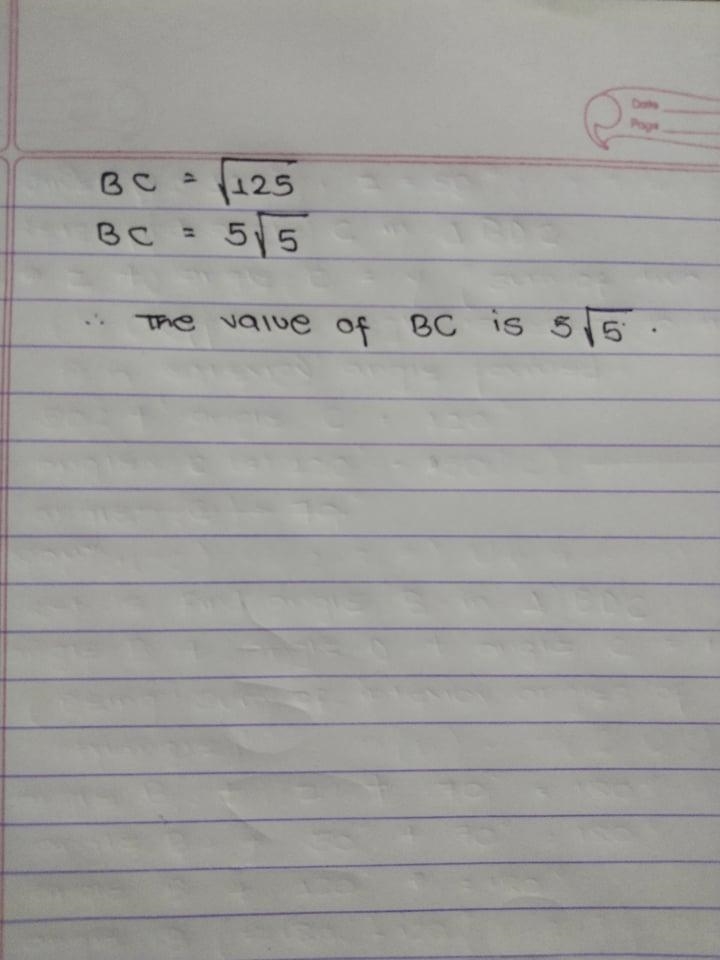 Date
Page
BC = √125
BC = 5√5
∴ The value of BC is 5√5.